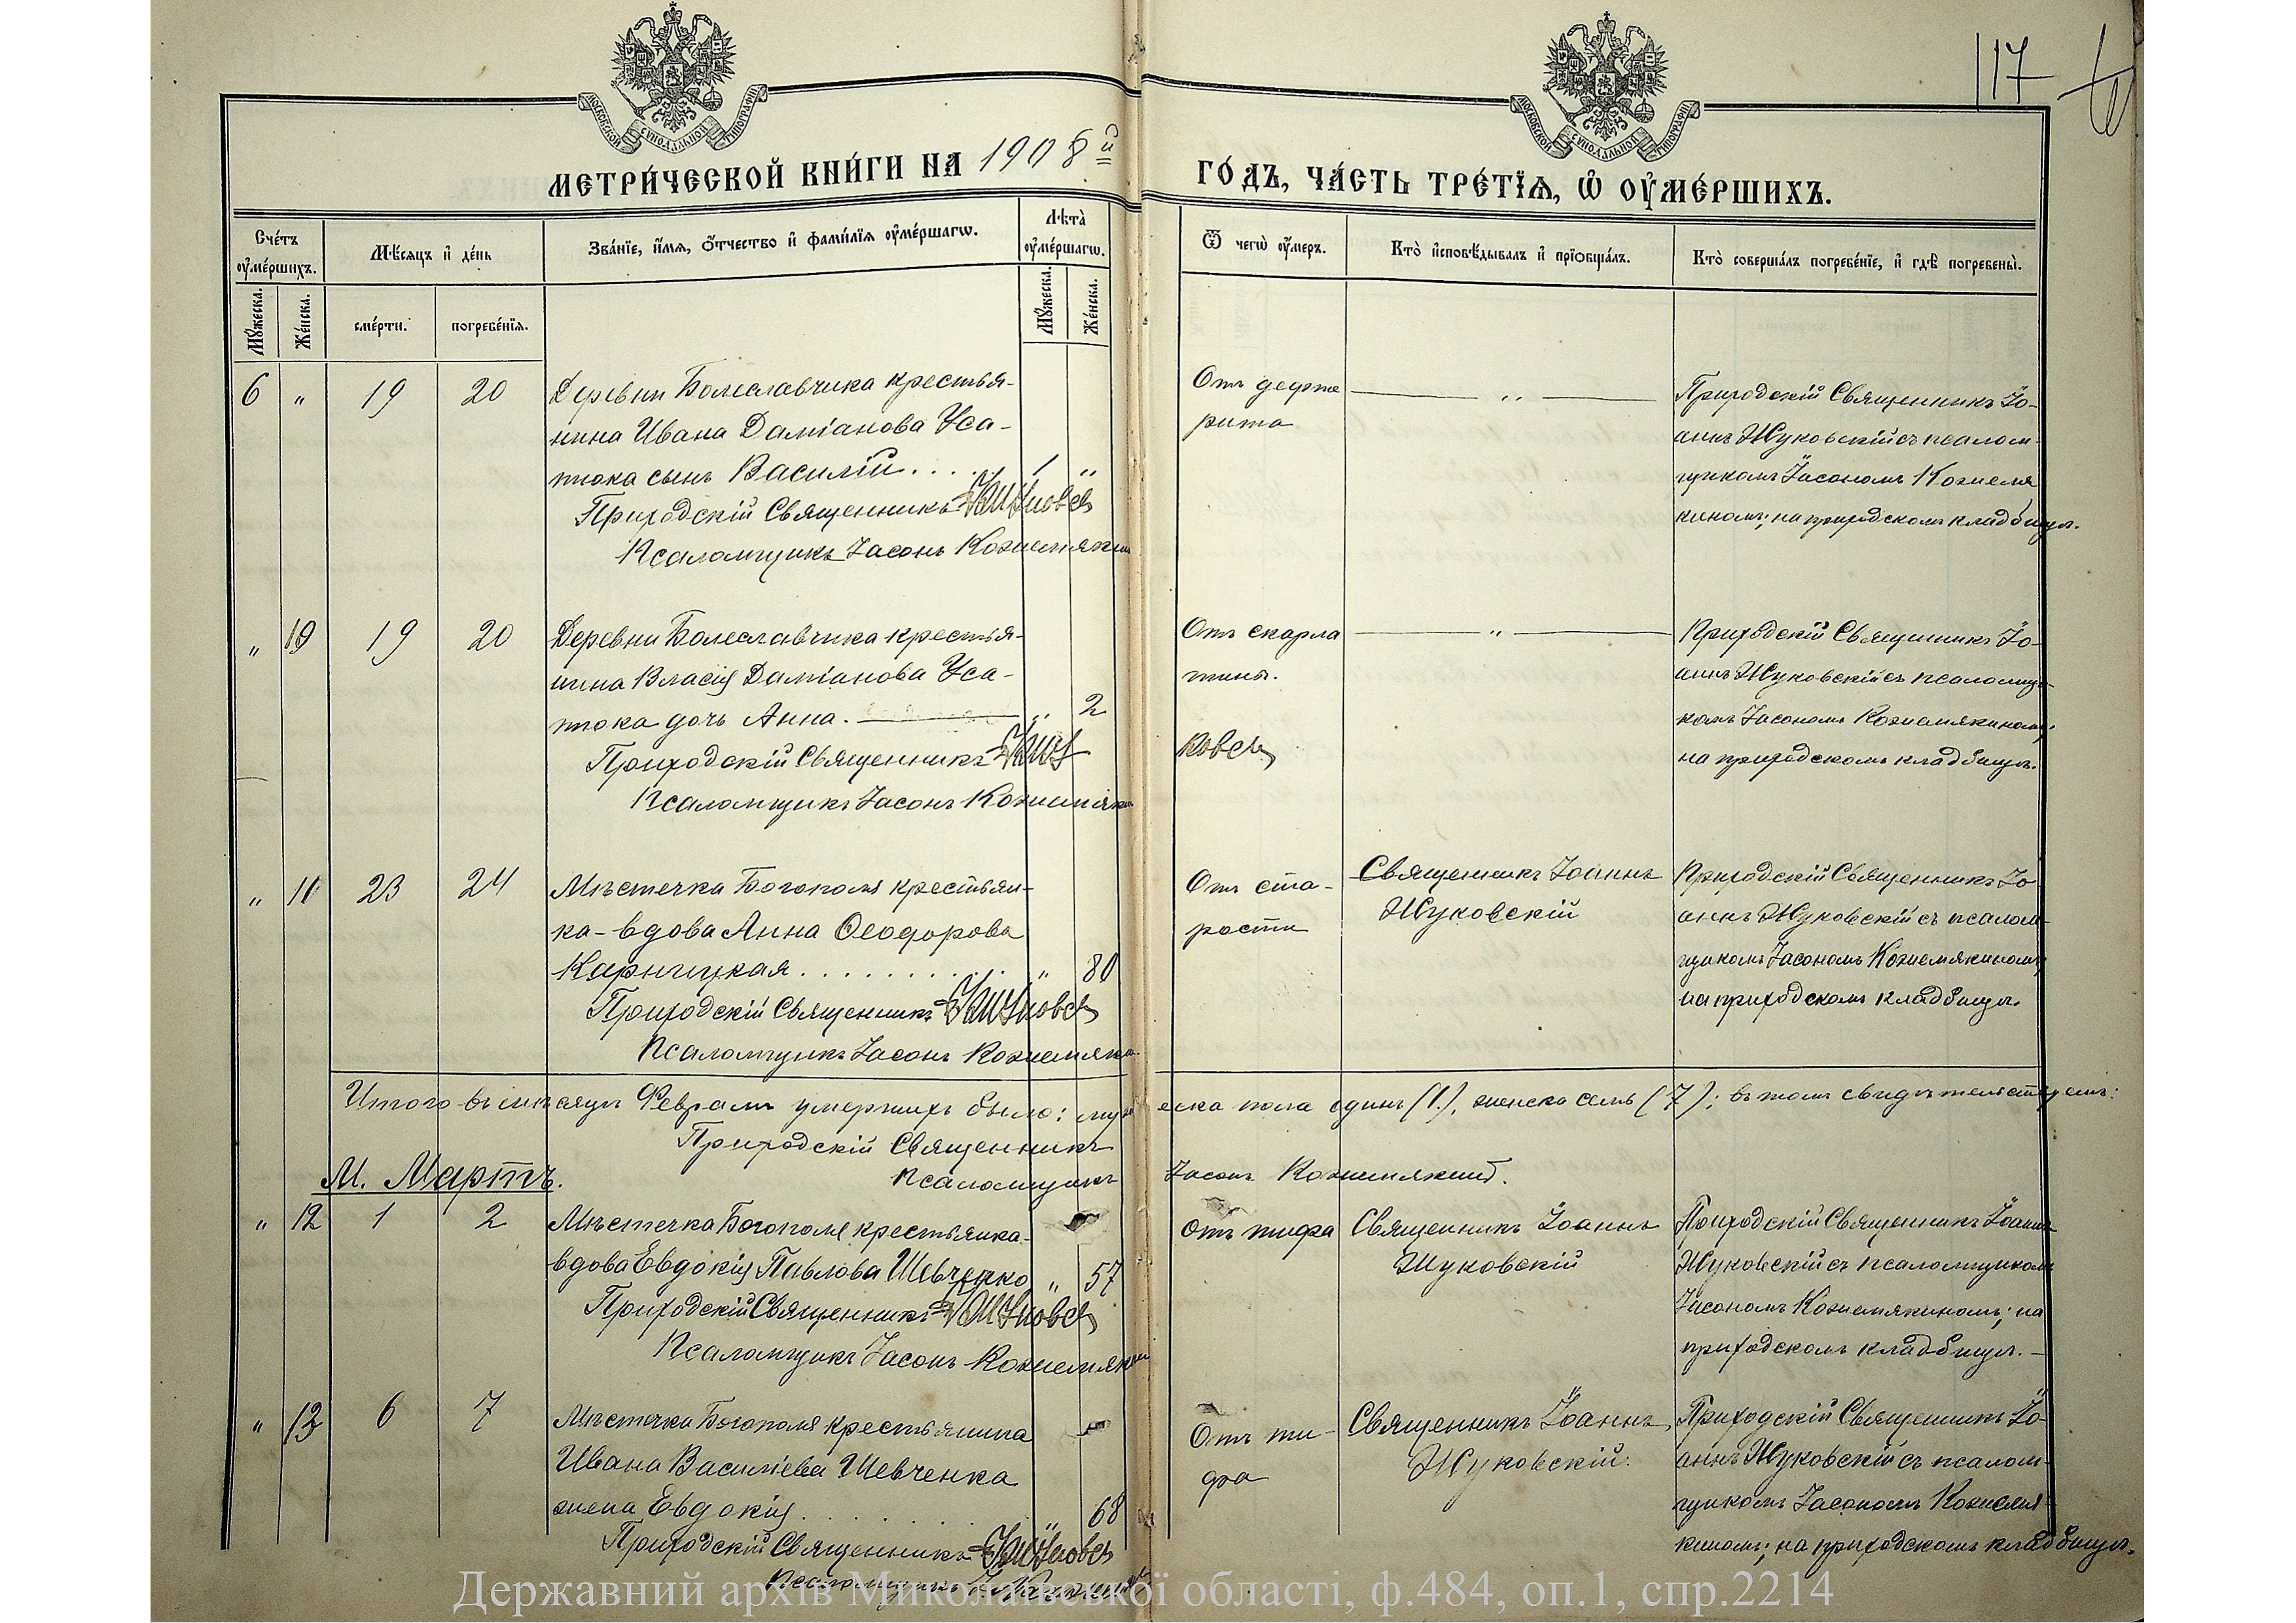 117
МЕТРИ́ЧЕСКОЙ КНИ́ГИ НА 1908й ГО́ДЪ, ЧА́СТЬ ТРЕ́ТЇѦ, Ѡ ОУ҆МЕ́РШИХЪ.
Счетъ оумершихъ.
Мꙋжеска.
Женска.
Мѣсяцъ и день
смерти.
погребенїя.
Званїе, имя, отчество и фамилїя оумершагѡ.
Лѣта оумершагѡ.
Мꙋжеска.
Женска.
Ѿ чегѡ оумеръ.
Кто исповѣдывалъ и прїобщалъ.
Кто совершалъ погребенїе, и гдѣ погребены.
6 " 19 20
Деревни Болеславчика крестья-
нина Ивана Даміанова Уса-
тюка сынъ Василій. . . . 1 "
Приходскій Священникъ
Псаломщикъ Іасонъ Кожемякин
Отъ дифте
рита
"
Приходскій Священникъ Іо-
аннъ Жуковскій съ псалом-
щикомъ Іасономъ Кожемя
кинымъ; на приходскомъ кладбищѣ.
" 10 19 20
Деревни Болеславчика крестья-
нина Власія Даміанова Уса-
тюка дочь Анна. " 2
Приходскій Священникъ
Псаломщикъ Іасонъ Кожемяки
Отъ скарла
тины.
"
Приходскій Священникъ Іо-
аннъ Жуковскій съ псаломщи-
комъ Іасономъ Кожемякиномъ;
на приходскомъ кладбищѣ.
" 11 23 24
Мѣстечка Богополя крестьян-
ка-вдова Анна Ѳеодорова
Карницкая . . . . . . . . " 80
Приходскій Священникъ
Псаломщикъ Іасонъ Кожемяки
Отъ ста-
рости
Священникъ Іоаннъ
Жуковскій
Приходскій Священникъ Іо
аннъ Жуковскій съ псалом-
щикомъ Іасономъ Кожемякиномъ;
на приходскомъ кладбищѣ.
Итого въ мѣсяцѣ Февралѣ умершихъ было: муж еска пола одинъ (1.), женска семь (7); въ томъ свидѣтельствуемъ:
Приходскій Священникъ
Псаломщикъ Іасонъ Кожемякинъ.
М. Мартъ.
" 12 1 2
Мѣстечка Богополя крестьянка-
вдова Евдокія Павлова Шевченко " 57
Приходскій Священникъ
Псаломщикъ Іасонъ Кожемякин
Отъ тифа
Священникъ Іоаннъ
Жуковскій
Приходскій Священникъ Іоаннъ
Жуковскій съ псаломщикомъ
Іасономъ Кожемякиномъ; на
приходскомъ кладбищѣ.
" 13 6 7
Мѣстечка Богополя крестьянина
Ивана Василіева Шевченка
жена Евдокія . . . . . . " 68
Приходскій Священникъ
Псаломщикъ
Отъ ти-
фа
Священникъ Іоаннъ
Жуковскій.
Приходскій Священникъ Іо-
аннъ Жуковскій съ псалом-
щикомъ Іасономъ Кожемя-
киномъ; на приходскомъ кладбищѣ.
Державний архів Миколаївської області, ф.484, оп.1, спр.2214